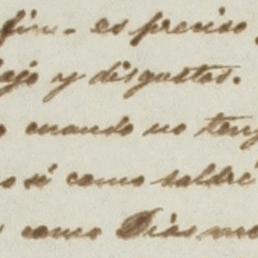 fin - es preciso
y disgustos.
cuando no teng
si como saldré
como Dios me